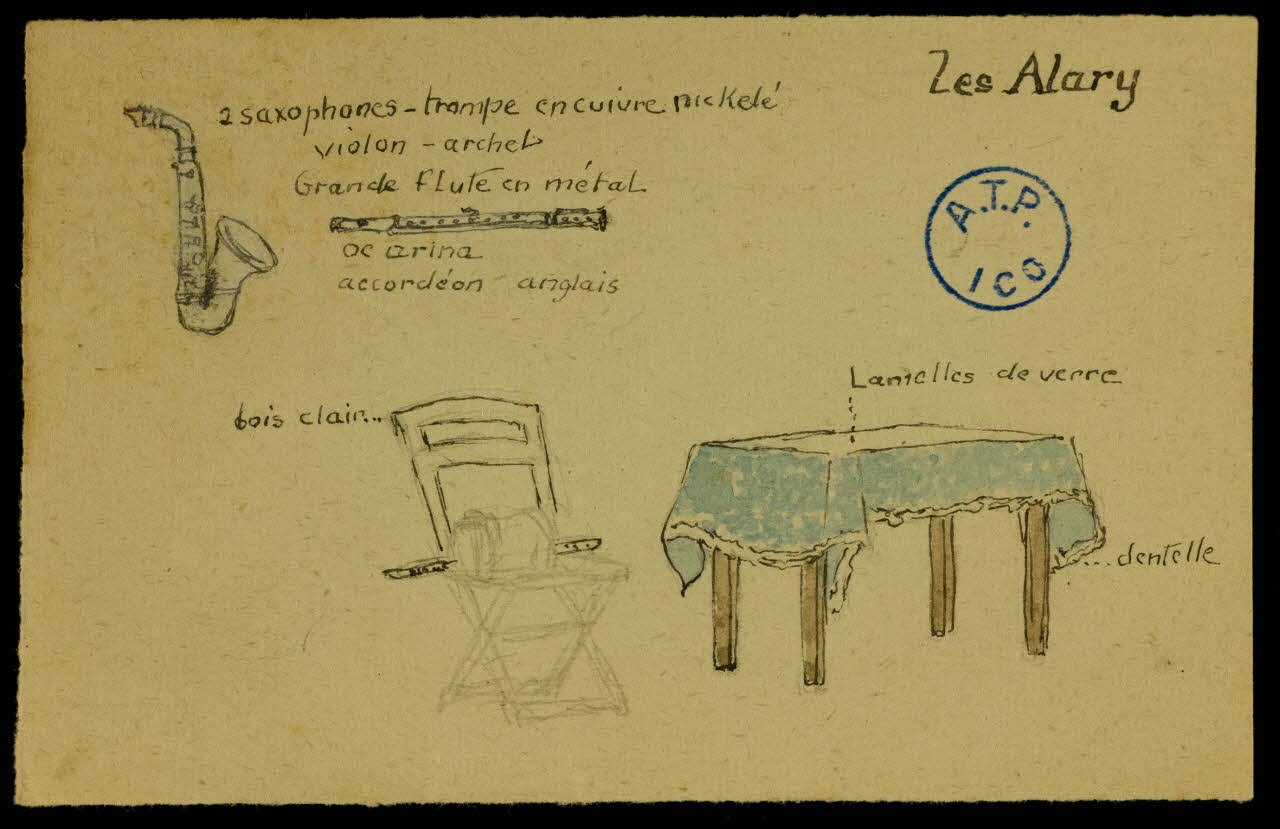 Les Alary
2 saxophones - trompe en cuivre nickelé
violon - archet
Grande flute en métal
ocarina
accordéon anglais
A.T.P.
ICO
Lamelles de verre
bois clair...
...dentelle